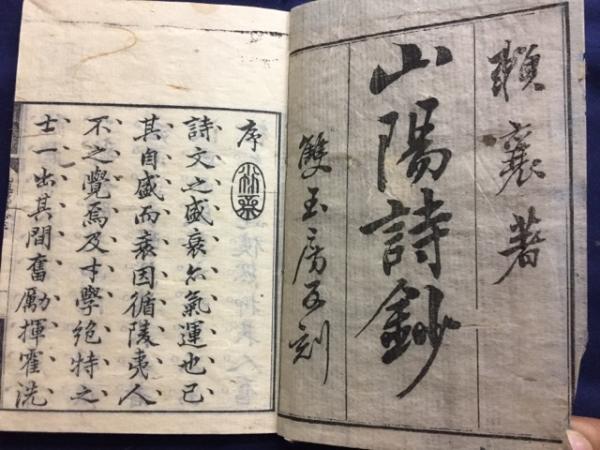 賴襄著
山陽詩鈔
雙玉房五刻
序
詩文之盛衰尒氣運也已
其自盛而衰因循陵夷人
不之覺焉及才學絶特之
士一出其間奮勵揮霍洗